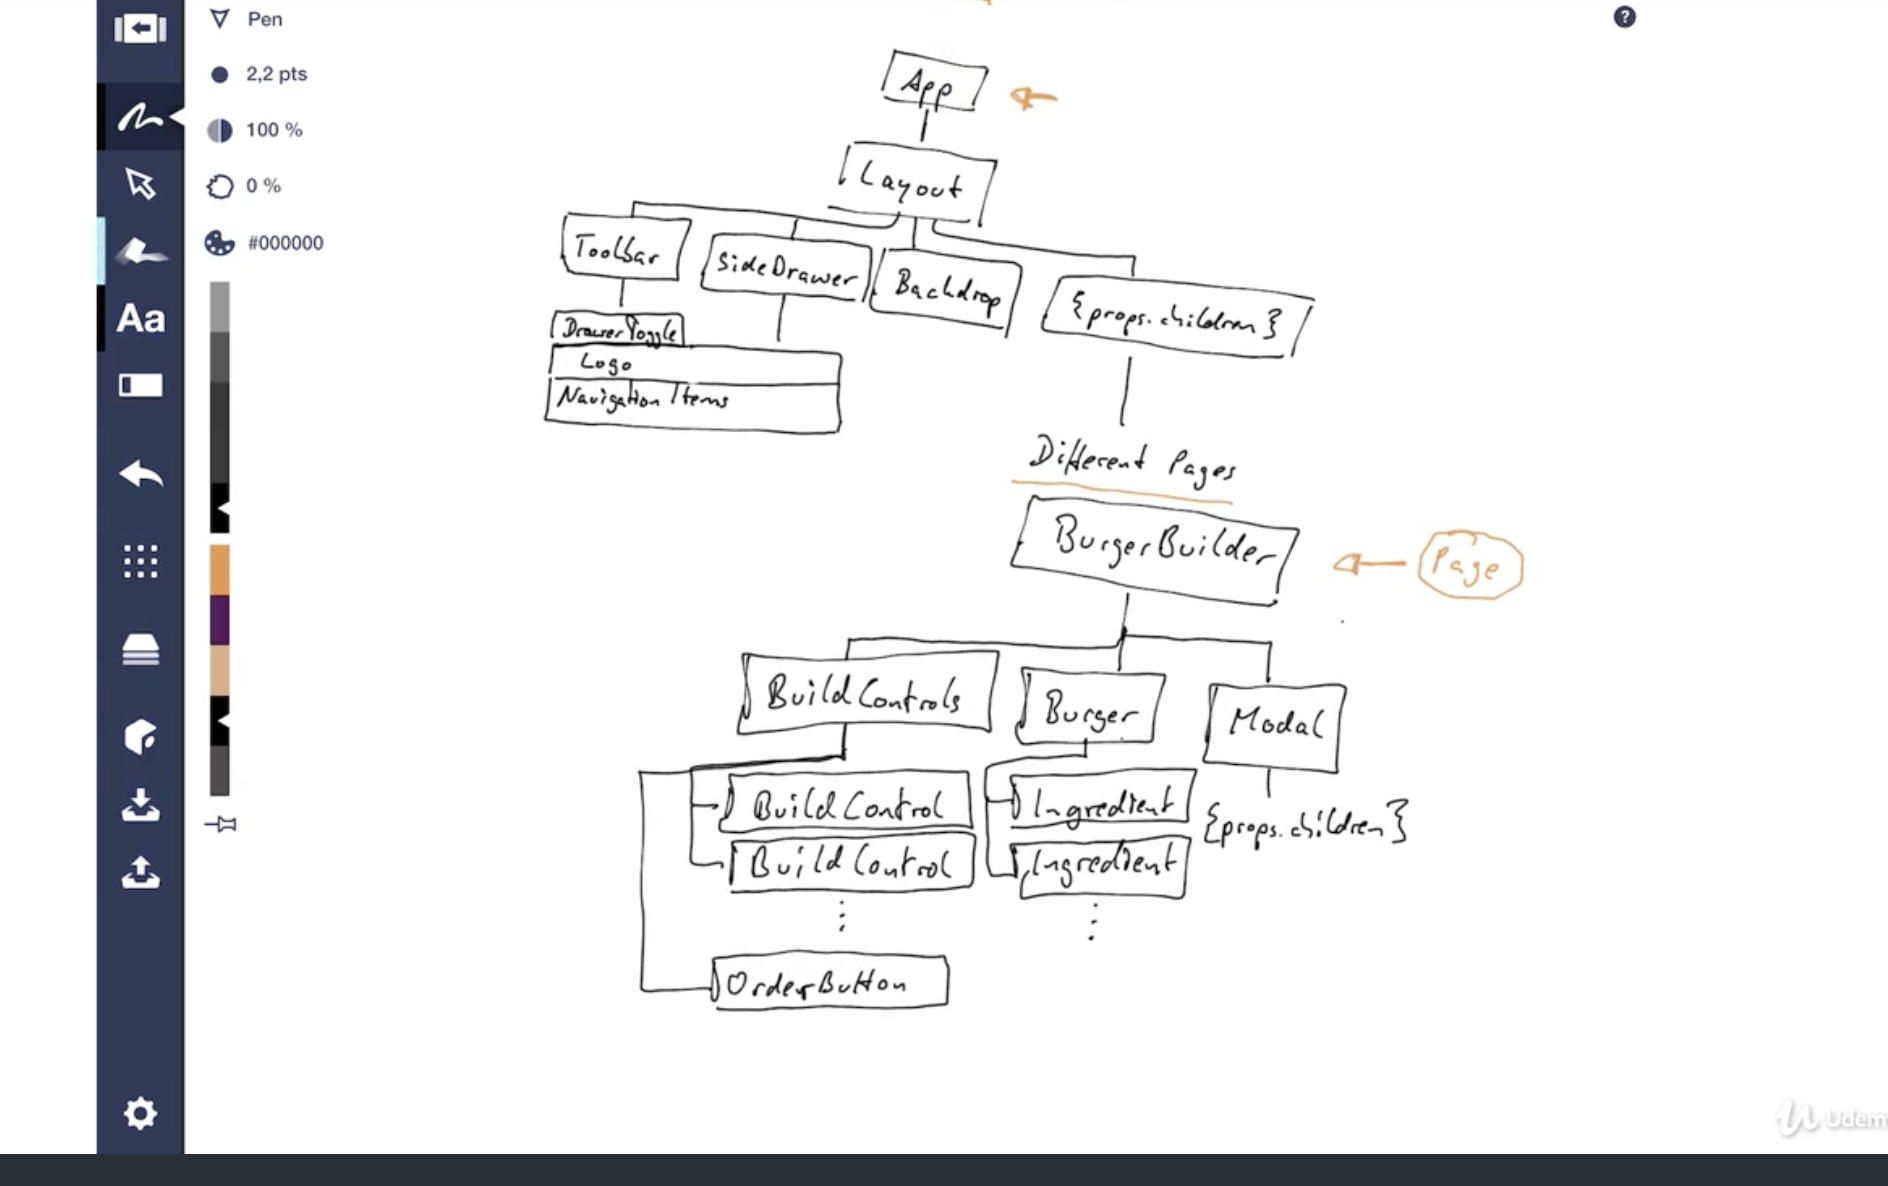 Pen
2,2 pts
100 %
0 %
#000000
Aa
?
App
Layout
Toolbar
SideDrawer
Backdrop
{props.children}
DrawerToggle
Logo
Navigation Items
Different Pages
BurgerBuilder
Page
BuildControls
Burger
Modal
BuildControl
Ingredient
{props.children}
BuildControl
Ingredient
OrderButton
Udem